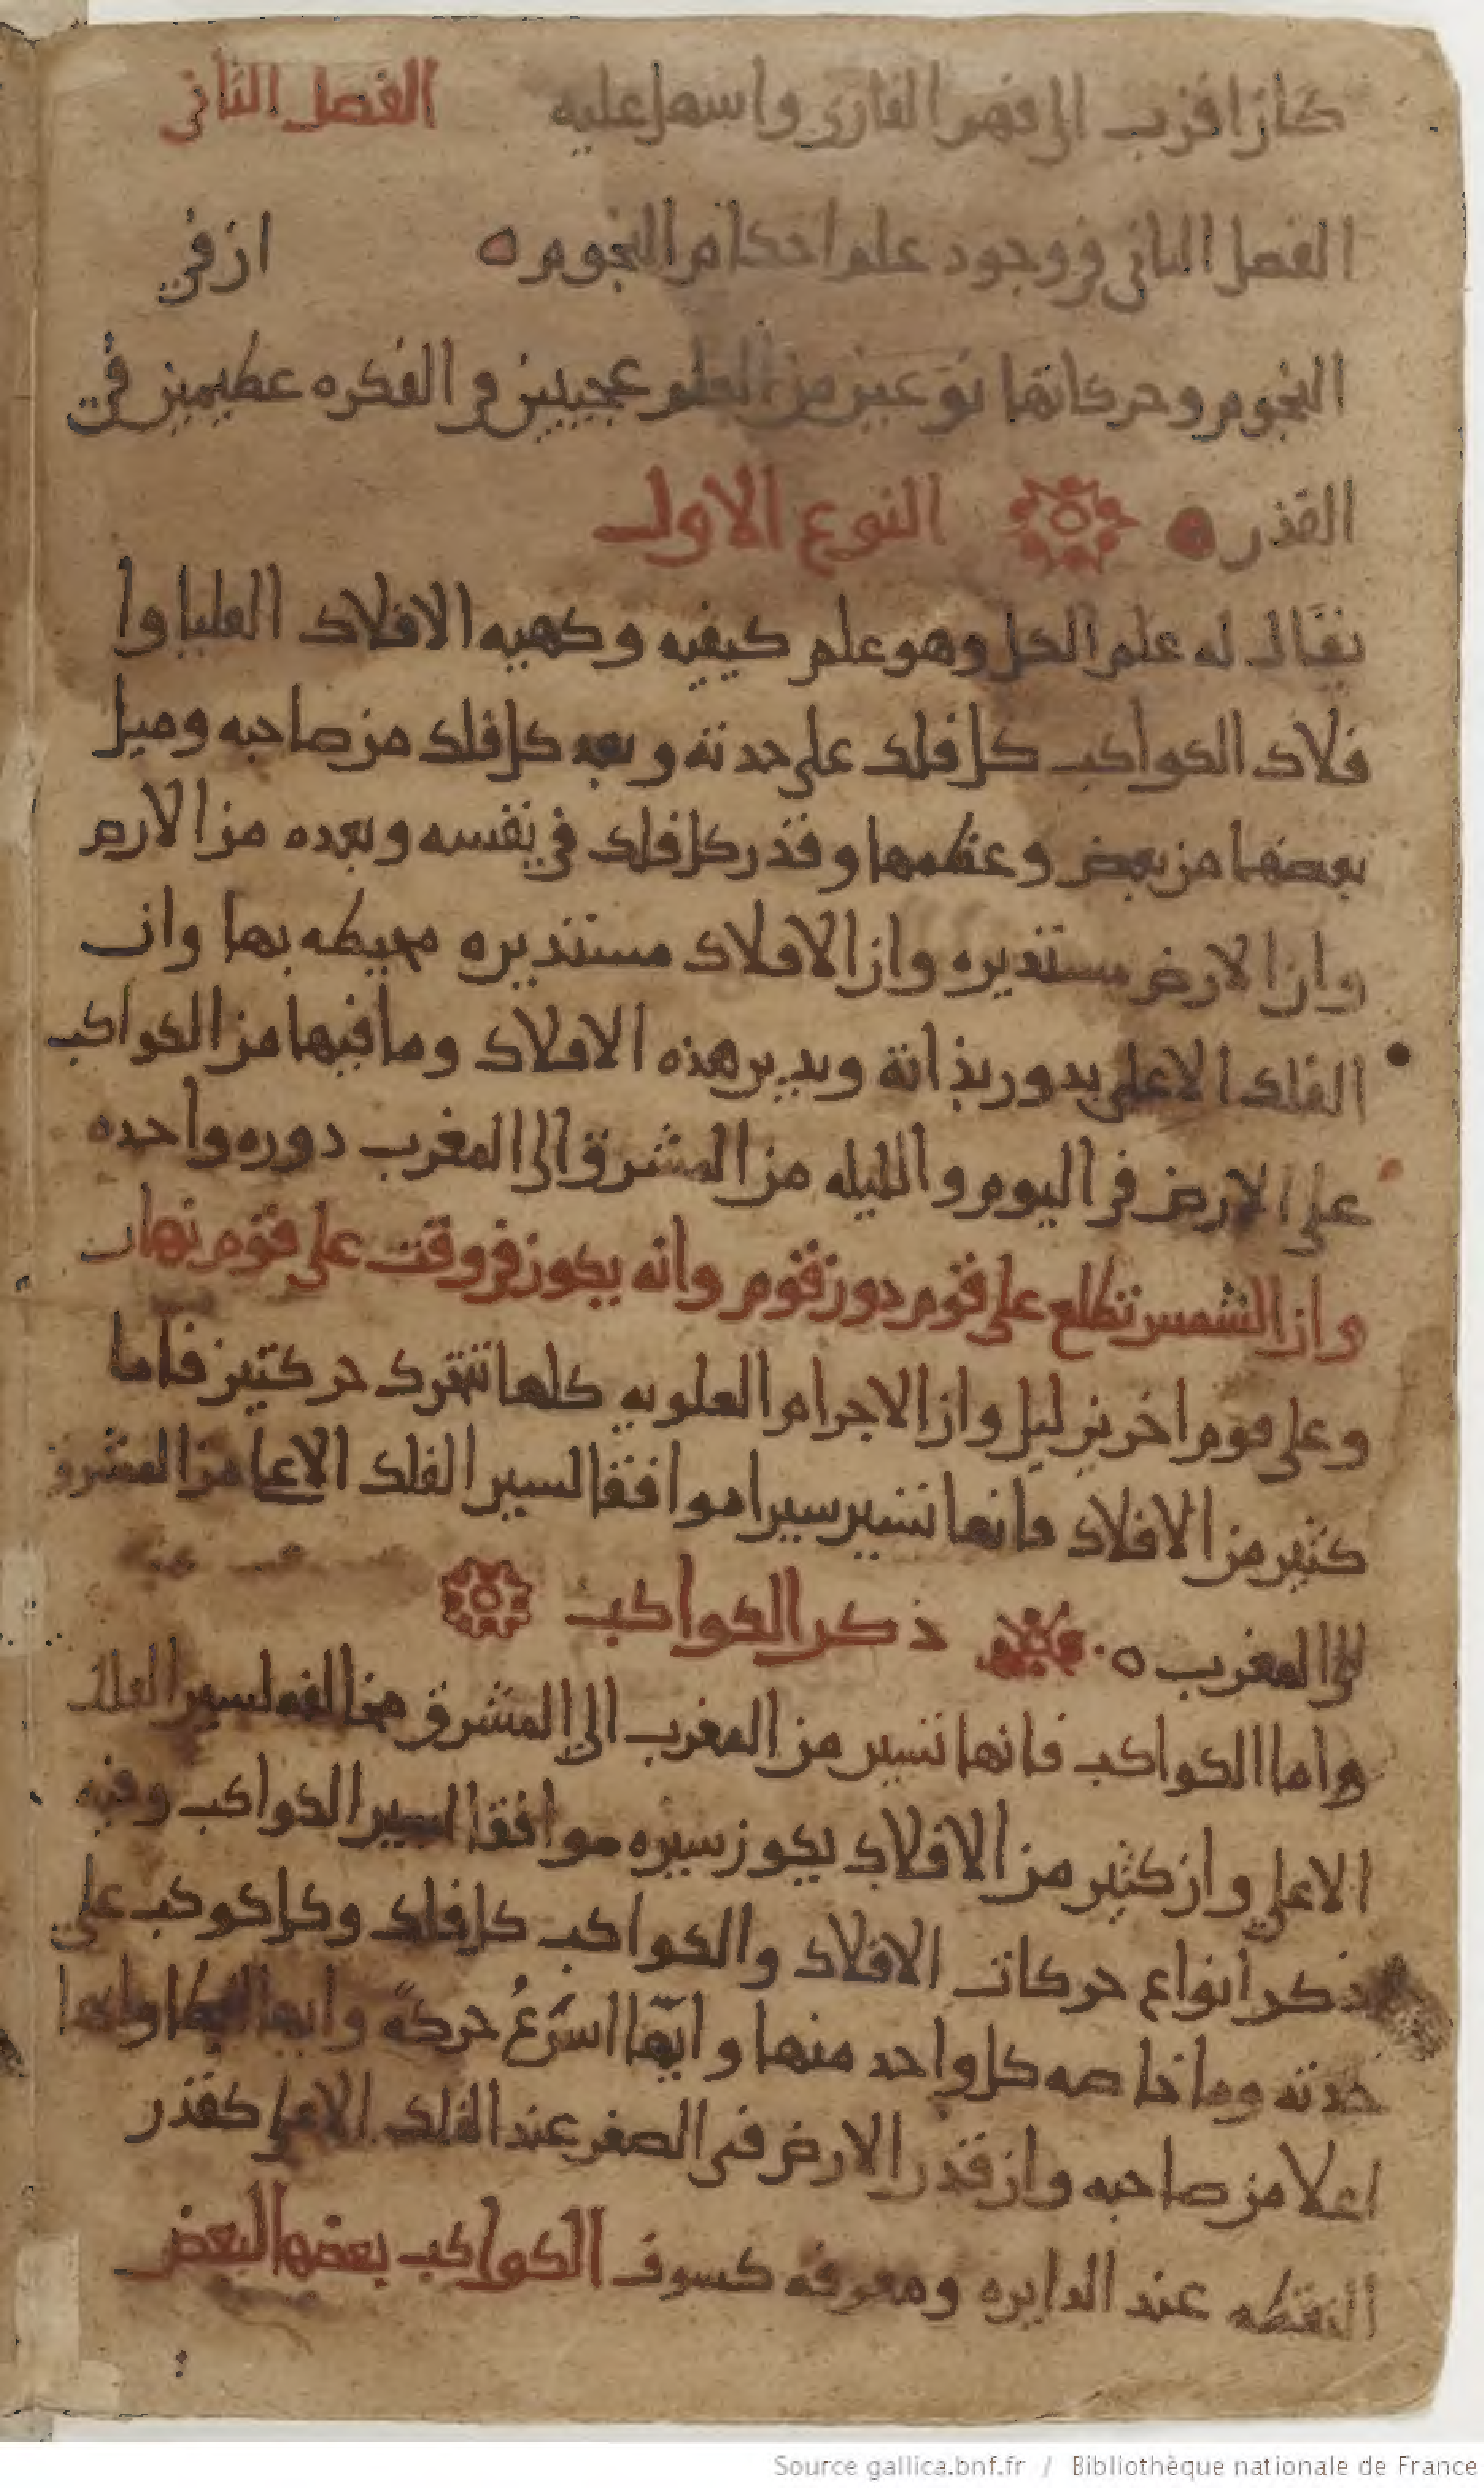 كان اقرب الى فهم القارى واسهل عليه الفصل الثانى
الفصل الثانى فى وجود علم احكام النجوم ان في
النجوم وحركاتها نوعين من العلم عجيبين فى الفكره عظيمين في
القدر النوع الاول
يقال له علم الكل وهو علم كيفيه وكميه الافلاك العليا وا
فلاك الكواكب كل فلك على حدته وبعد كل فلك من صاحبه وميل
بعضها من بعض وعظمها وقدر كل فلك في نفسه وبعده من الارض
وان الارض مستديره وان الافلاك مستديره محيطه بها وان
الفلك الاعلى يدور بذاته ويدير هذه الافلاك وما فيها من الكواكب
على الارض فى اليوم والليله من المشرق الى المغرب دوره واحده
وان الشمس تطلع على قوم دون قوم وانه يكون فى وقت على قوم نهار
وعلى قوم اخرين ليل وان الاجرام العلويه كلها تتحرك حركتين فاما
كثير من الافلاك فانها تسير سيرا موافقا لسير الفلك الاعلى من المشرق
الى المغرب ذكر الكواكب
واما الكواكب فانها تسير من المغرب الى المشرق مخالفه لسير الفلك
الاعلي وان كثير من الافلاك يكون سيره موافقا لسير الكواكب وفيه
ذكر انواع حركات الافلاك والكواكب كل فلك وكل كوكب علي
حدته وما خاصه كل واحد منها وايّها اسرَعُ حركةً وايها ابطا وايها
اعلا من صاحبه وان قدر الارض فى الصغر عند الفلك الاعلى كقدر
النقطه عند الدايره ومعرفه كسوف الكواكب بعضها لبعض
Source gallica.bnf.fr / Bibliothèque nationale de France